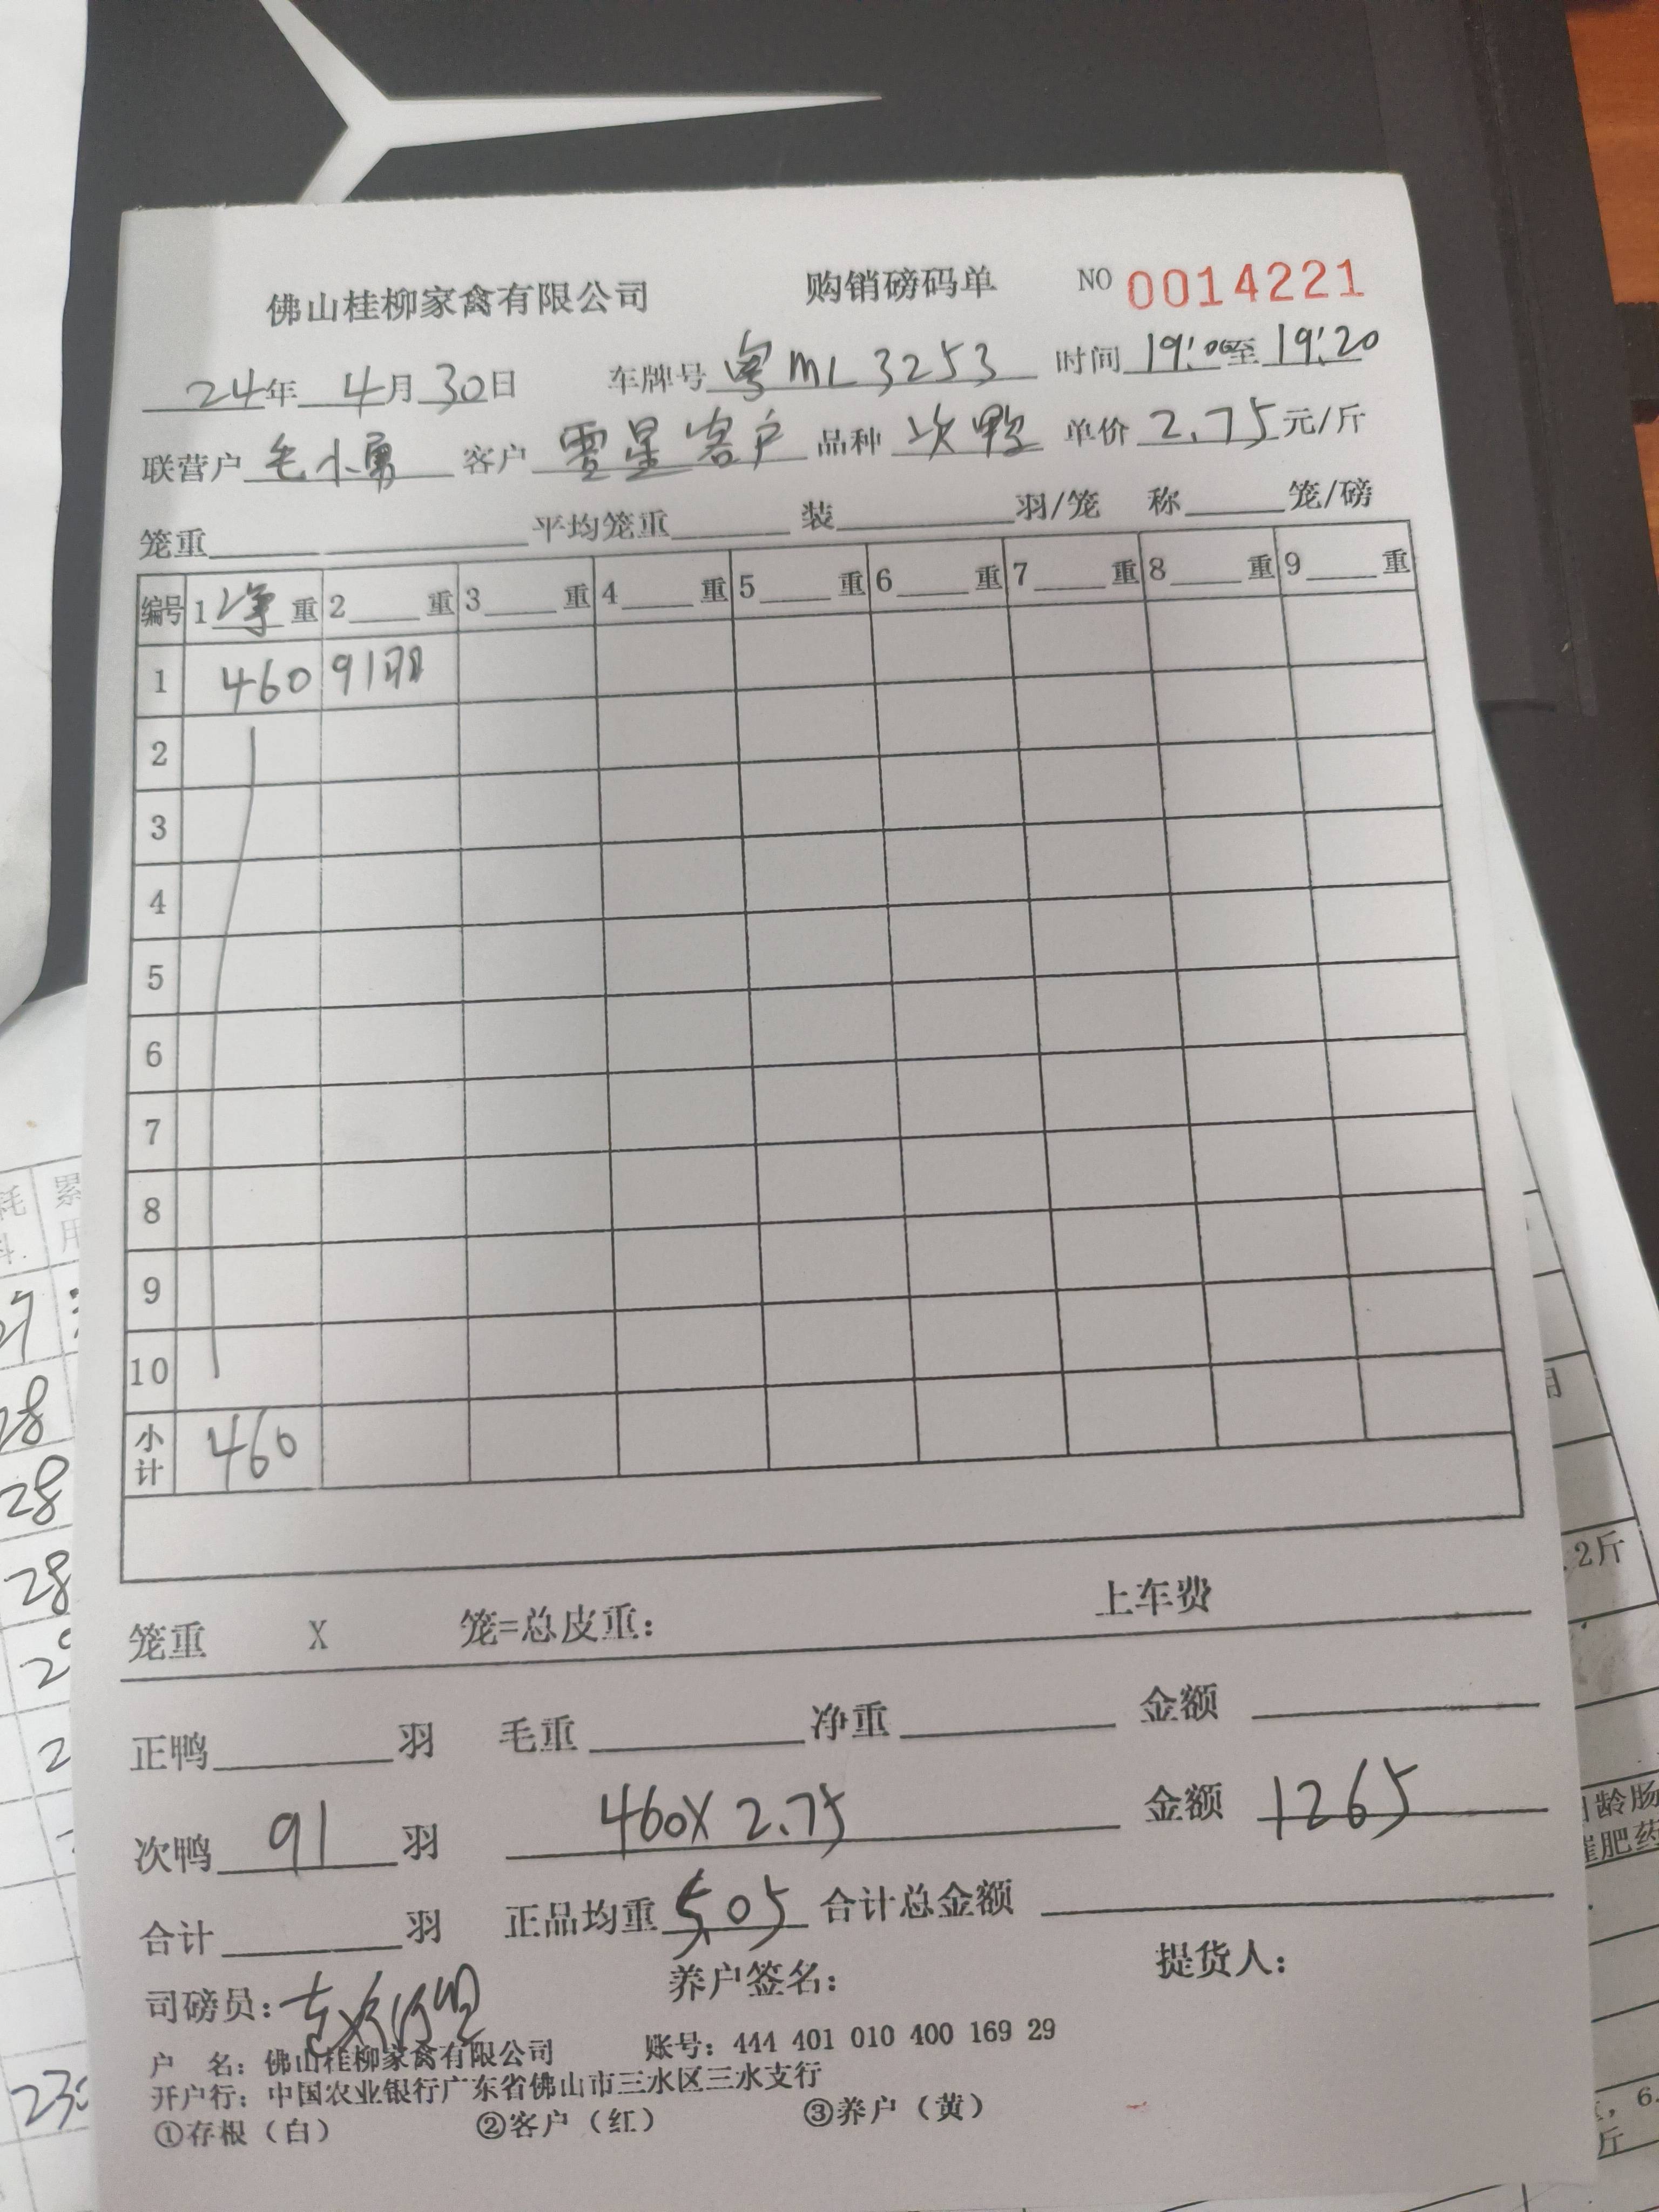 佛山桂柳家禽有限公司 购销磅码单 NO 0014221
24年 4月 30日 车牌号 粤ML3253 时间 19:00至 19:20
联营户 毛小勇 客户 零星客户 品种 次鸭 单价 2.75 元/斤
笼重 平均笼重 装 羽/笼 称 笼/磅
编号 1 净 重 2 重 3 重 4 重 5 重 6 重 7 重 8 重 9 重
1 460 91羽
2
3
4
5
6
7
8
9
10
小计 460
笼重 X 笼=总皮重: 上车费
正鸭 羽 毛重 净重 金额
次鸭 91 羽 460X2.75 金额 1265
合计 羽 正品均重 5.05 合计总金额
司磅员: 养户签名: 提货人:
户 名: 佛山桂柳家禽有限公司 账号: 444 401 010 400 169 29
开户行: 中国农业银行广东省佛山市三水区三水支行
①存根（白） ②客户（红） ③养户（黄）
耗 累
用
28
28
28
2斤
日龄肠
催肥药
斤